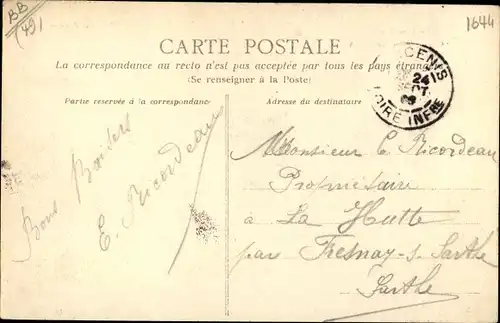 BB
(49)
1644
CARTE POSTALE
La correspondance au recto n'est pas acceptée par tous les pays étran
(Se renseigner à la Poste)
CENIS
24
SEPT
LOIRE INFRE
Partie reservée à la correspondance
Adresse du destinataire
Bons Baisers
E. Ricordeau
Monsieur E Ricordeau
Propriétaire
à La Hutte
par Fresnay-s-Sarthe
Sarthe